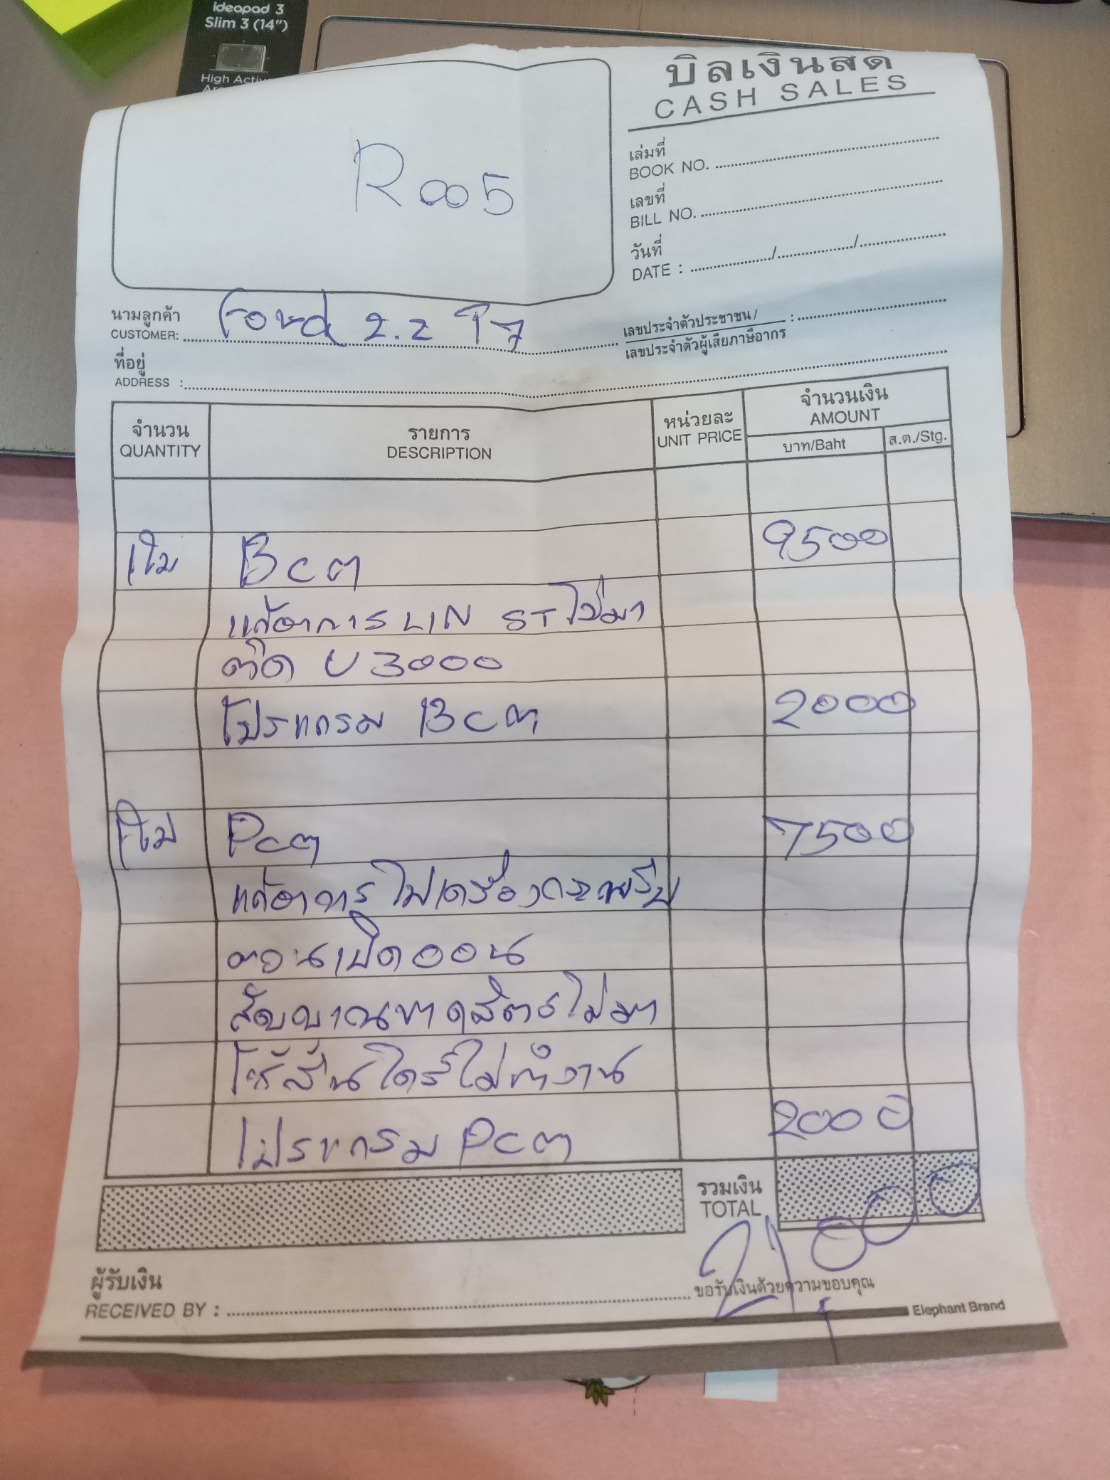 ideapad 3
Slim 3 (14")
บิลเงินสด
CASH SALES
R005
เล่มที่
BOOK NO.
เลขที่
BILL NO.
วันที่
DATE : / /
นามลูกค้า
CUSTOMER: Ford 2.2 T7
เลขประจำตัวประชาชน/ :
เลขประจำตัวผู้เสียภาษีอากร
ที่อยู่
ADDRESS :
จำนวน รายการ หน่วยละ จำนวนเงิน
QUANTITY DESCRIPTION UNIT PRICE AMOUNT
บาท/Baht ส.ต./Stg.
1ใบ Bcm 9500
แก้อาการ LIN ST ไม่มา
ติด U3000
โปรแกรม Bcm 2000
1ใบ Pcm 7500
แก้อาการ ไฟเครื่องกระพริบ
ตอนเปิดออน
สัญญาณขาดสตาร์ไม่มา
ไดร์ไม่ทำงาน
โปรแกรม Pcm 2000
รวมเงิน
TOTAL 21,000
ผู้รับเงิน
RECEIVED BY :
ขอรับเงินด้วยความขอบคุณ
Elephant Brand